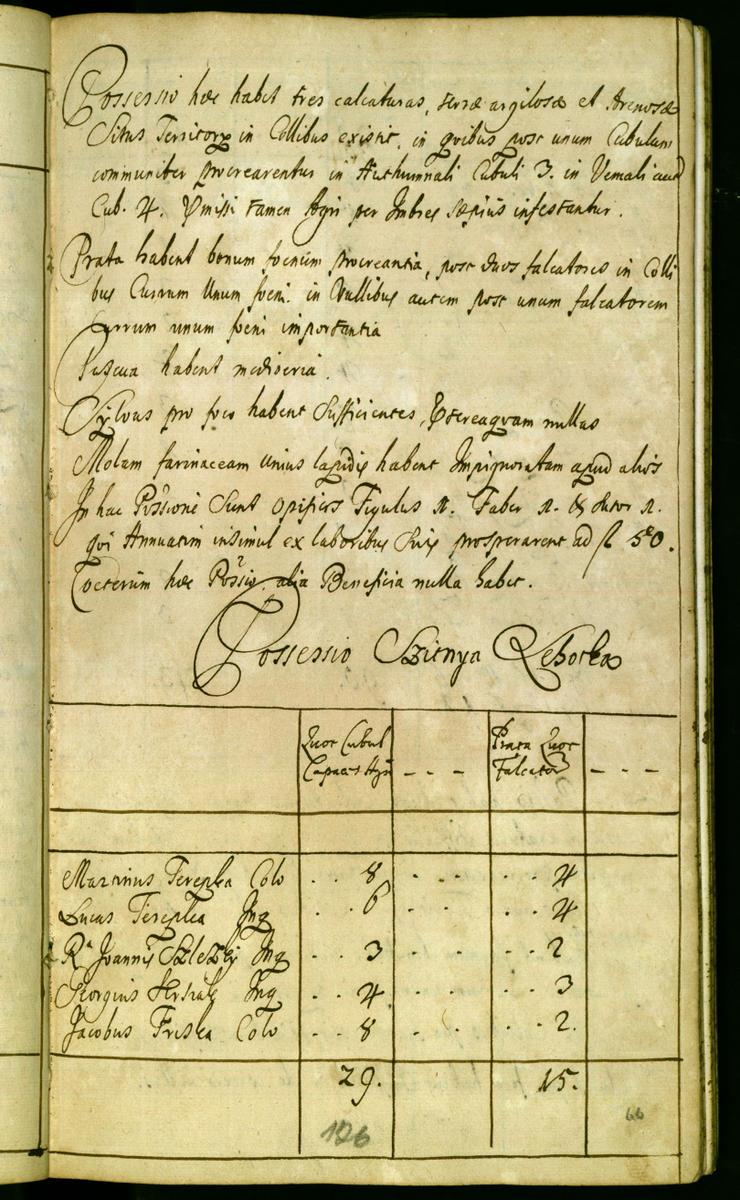 Possessio hæc habet tres calcaturas, terræ argilosæ et Arenosæ
Situs Territory in Collibus existit, in quibus post unum Cubulum
communiter procrearentur in Authumnali Cubuli 3. in Vernali aut
Cub. 4. Præmissi tamen Agri per Imbres sæpius infestantur.
Prata habent bonum foenum procreantia, post duos falcatores in Colli
bus Currum Unum foeni. in Vallibus autem post unum falcatorem
currum unum foeni importantia
Pascua habent mediocria.
Sylvas pro foco habent Sufficientes, Præterequam nullas
Molam farinaceam unius lapidis habent Impignoratam apud alios
In hac Possione Sunt Opifices Figulus 1. Faber 1. & Sutor 1.
qui Annuatim insimul ex laboribus Suis prosperarent ad fl 50.
Coeterum hæc Possio. alia Beneficia nulla habet.
Possessio Szitnya Lehotka
Quot Cubul Capaces Agri - - - Prata Quot Falcator - - -
Martinus Tereplea Colo . . 8 . . . . . 4
Lucas Tereplea Inq . . 6 . . . . 4
Ra Joannis Szleziy Inq . . 3 . . . . 2
Georgius Inq . . 4 . . . . 3
Jacobus Friska Colo . . 8 . . . . 2.
29. 15.
126
66